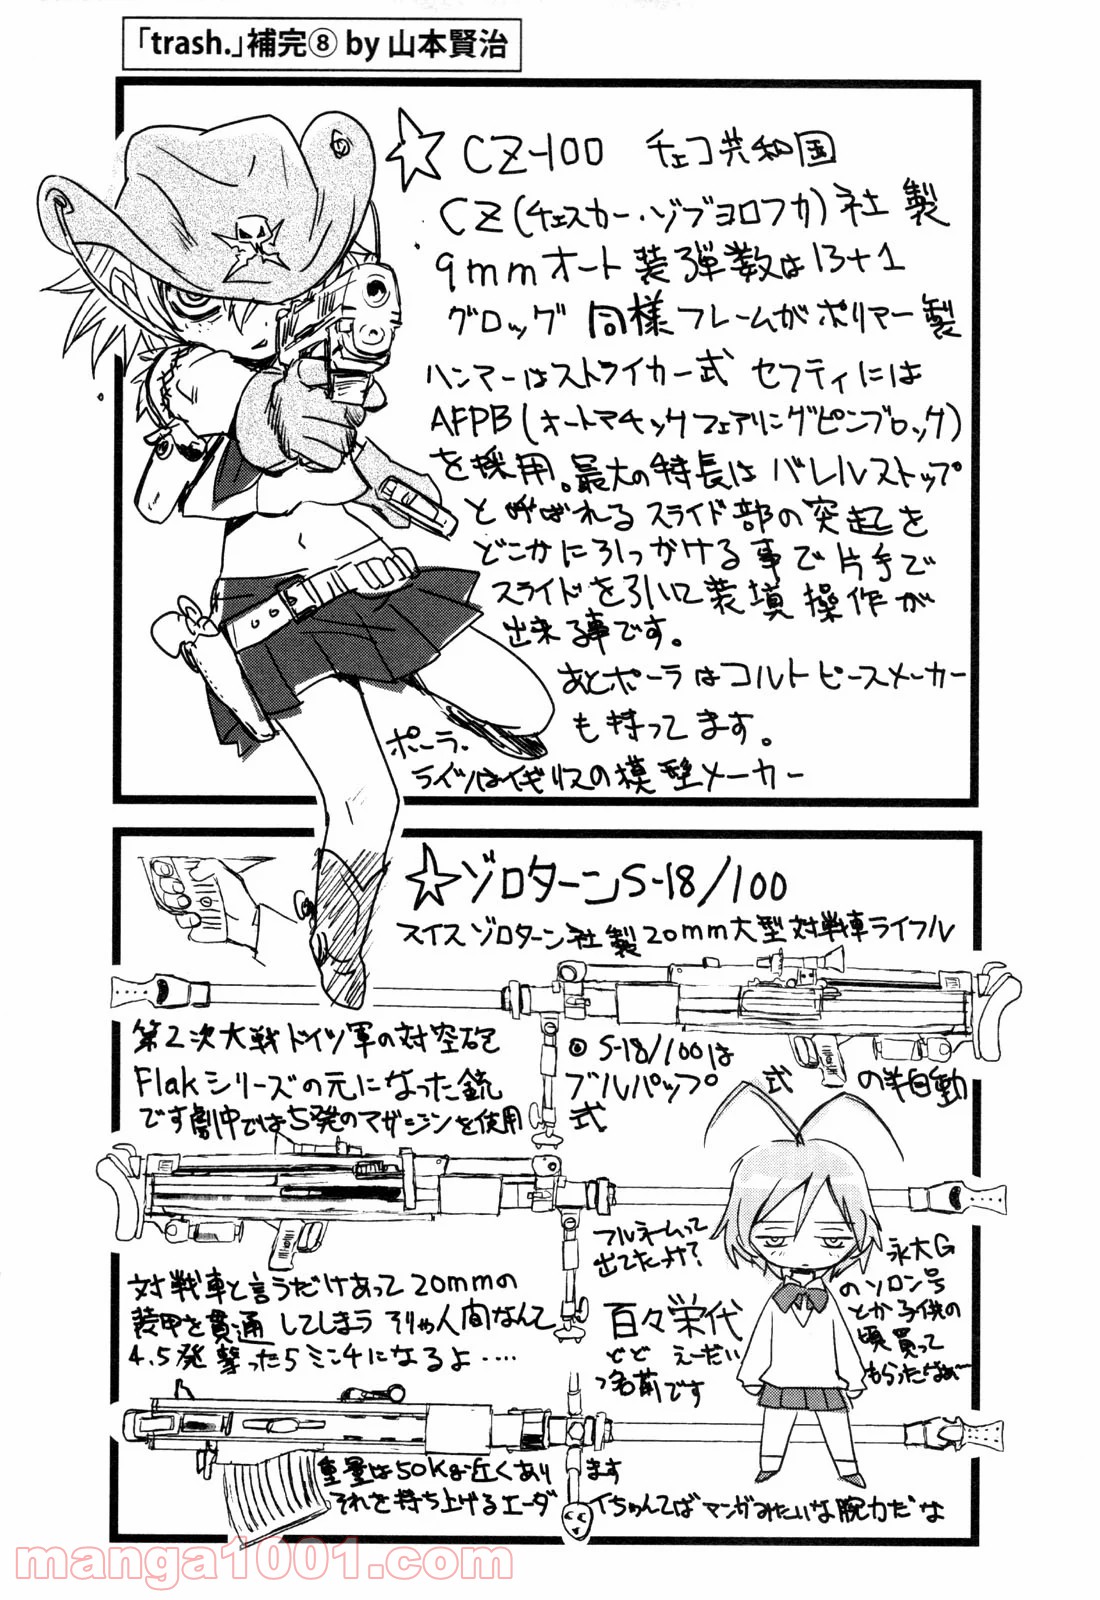 「trash.」補完⑧ by 山本賢治
☆CZ-100 チェコ共和国
CZ(チェスカー・ゾブヨロフカ)社製
9mmオート 装弾数は13+1
グロッグ同様フレームがポリマー製
ハンマーはストライカー式 セフティには
AFPB(オートマチックファアリングピンブロック)
を採用。最大の特長はバレルストップ
と呼ばれるスライド部の突起を
どこかに引っかける事で片手で
スライドを引いて装填操作が
出来る事です。
あとポーラはコルトピースメーカー
も持ってます。
ポーラ.
ライツはイギリスの模型メーカー
☆ゾロターンS-18/100
スイスゾロターン社製20mm大型対戦車ライフル
第2次大戦ドイツ軍の対空砲
Flakシリーズの元になった銃
です劇中では5発のマガジンを使用
◎S-18/100は
ブルパップ式の半自動
式
対戦車と言うだけあって20mmの
装甲を貫通してしまう そりゃ人間なんて
4.5発撃ったらミンチになるよ‥‥
フルネームって
出てたよけ?
百々栄代
どど えーだい
っ名前です
永大G
のソロン号
とか子供の
頃買って
もらったなぁ〜
重量は50kg近くあります
それを持ち上げるエーダイちゃんてばマンガみたいな腕力だな
manga1001.com